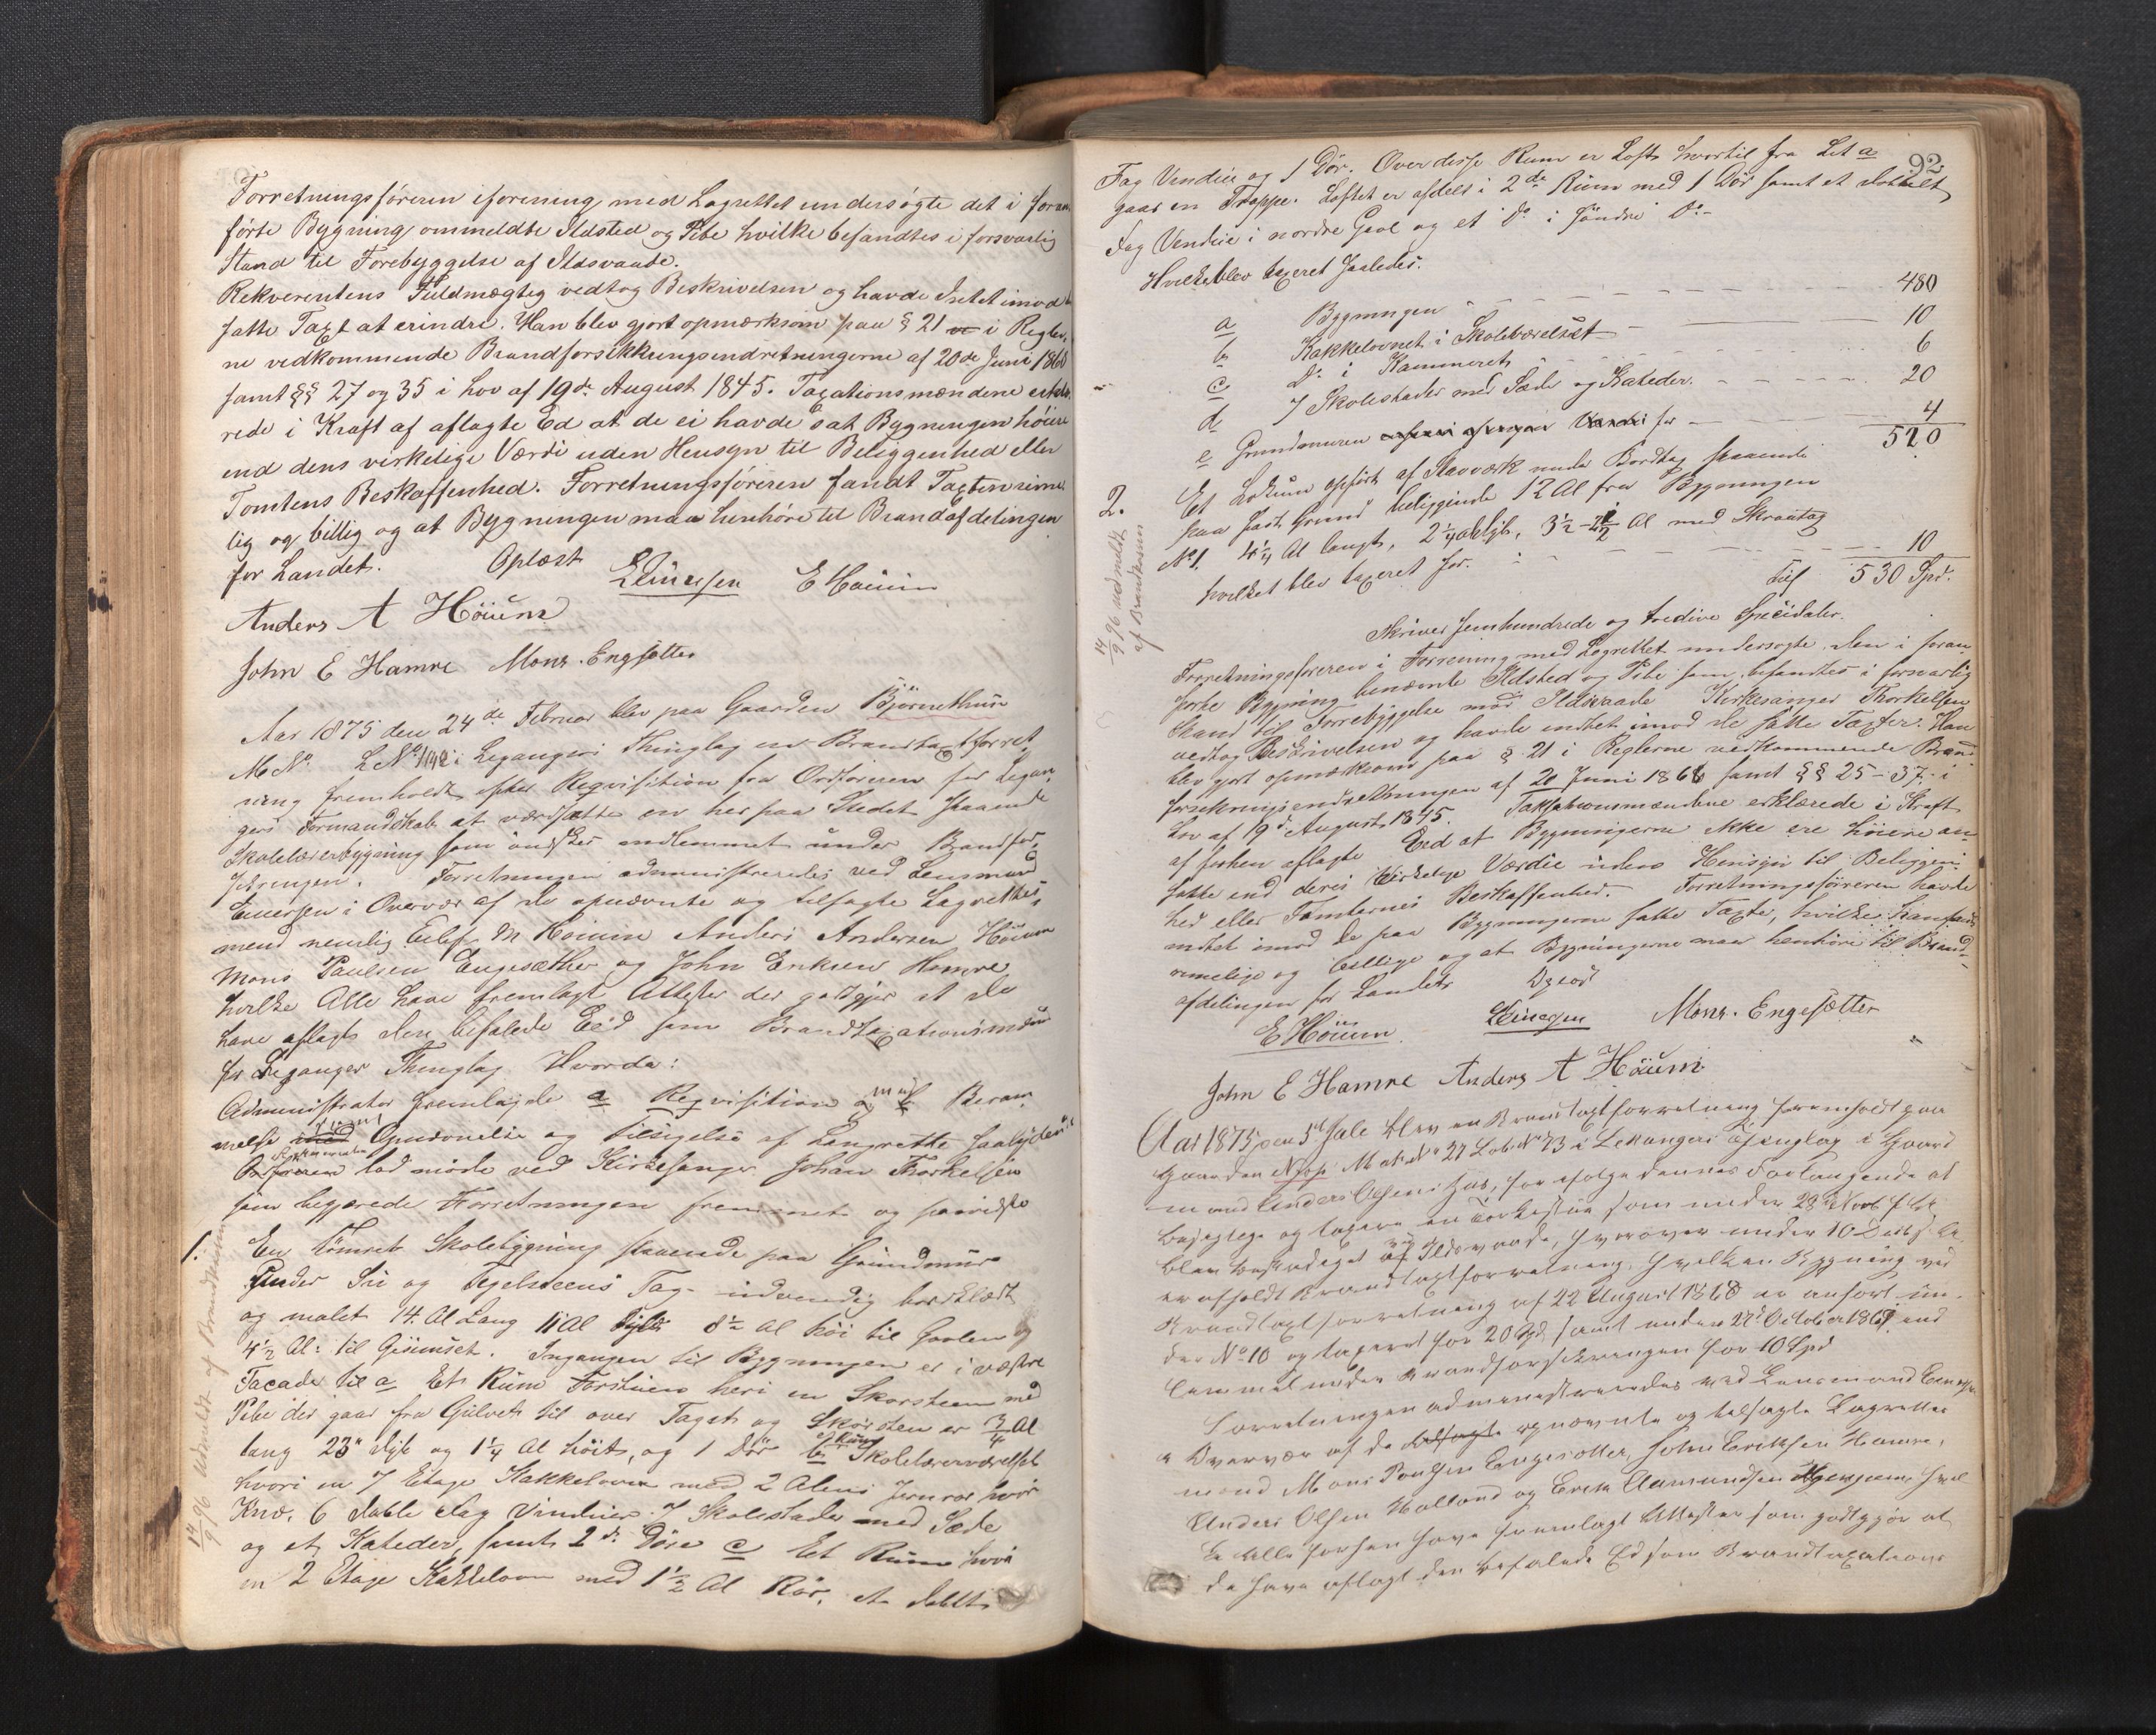 Forretningsføreren iforening med Lagrettet undersøgte det i foran
førte Bygning ommeldte Ildsted og Pibe hvilke befandtes i forsvarlig
Stand til Forebyggelse af Ildsvaade.
Rekverentens Fuldmægtig vedtog Beskrivelsen og havde Intet imod
satte Taxt at erindre. Han blev gjort opmærksom paa § 21 i Regler
ne vedkommende Brandforsikkringsindretningerne af 20de Juni 1868
samt §§ 27 og 35 i Lov af 19de August 1845. Taxationsmændene erklæ
rede i Kraft af aflagte Ed at de ei havde sat Bygningen høiere
end dens virkelige Værdi uden Hensyn til Beliggenhed eller
Tomtens Beskaffenhed. Forretningsføreren fandt Taxten rime
lig og billig og at Bygningen maa henhøre til Brandafdelingen
for Landet. Oplæst
Einersen E Høium
Anders A Höium
John E Hamre Mons. Engesætter
Aar 1875 den 24de Februar blev paa Gaarden Björnethun
M No. L No. 114 i Leganger Thinglag en Brandtaxtforret
ning fremholdt efter Reqvisition fra Ordföreren for Legan
gers Formandskab at værdsætte en her paa Stedet staaende
Skolelærerbygning som önskes indlemmet under Brandfor
sikringen. Forretningen administreredes ved Lensmand
Einersen i Overvær af de opnævnte og tilsagte Lagrettes
mænd nemlig Eilef M Höium Anders Andersen Höium
Mons Paulsen Engesæther og John Eriksen Hamre
hvilke Alle have fremlagt Attester der godtgjør at de
have aflagt den befalede Eed som Brandtaxationsmænd
for Leganger Thinglag. Hvorda:
Administrator fremlagde a Reqvisition Beram
melse Opnævnelse og Tilsigelse af Laugrette saalydende
lod møde ved Kirkesanger Johan Thorkelsen
som begjærede Forretningen fremmet og paaviste
1. En tömret Skolebygning staaende paa Grundmur
under Sü og Tegelsteens Tag indvendig bordklædt
og malet 14 Al Lang 11 Al dyb 8½ Al höi til Gavlen og
4½ Al: til Gesimset. Ingangen til Bygningen er i væstre
Facade til a Et Rüm Forstuen heri en Skorsteen med
Pibe der gaar fra Gulvet til over Taget og Skorsten er ¾ Al
lang 23" dyb og 1¼ Al höit, og 1 Dör b Skolelærerværelset
hvori en 7 Etage Kakkelovn med 2 Alens Jernrør hvor
Knæ. 6 dobble Fag Vinduer 7 Skolestader med Sæde
og et Kateder, samt 2de Döre c Et Rüm hvori
en 2 Etage Kakkelovn med 1½ Al Rör, et dobblt
14/9 96 udmeldt af Brandkassen
92
Fag Vindue og 1 Dør. Over disse Rum er Loft hvortil fra Lit a
gaar en Trappe. Loftet er afdelt i 2de Rüm med 1 Dör samt et dobbelt
Fag Vindue i nordre Gavl og et Do i søndre Do-
Hvilke blev taxeret saaledes.
a Bygningen 480
b Kakkelovnet i Skoleværelset 10
c Do i Kammeret 6
d 7 Skolestader med Sæde og Kateder. 20
e Grundmuren for 4
520
2. Et Lokum opført af Stavværk under Bordtag staaende
paa fast Grund beliggende 12 Al fra Bygningen
No 1 4¼ Al langt, 2¼ Al dyb, 3½ - 2½ Al med Skraatag
hvilket blev taxeret for 10
Tils 530 Spd.
14/9 96 udmeldt af Brandkassen
Skriver femhundrede og tredive Speciedaler.
Forretningsføreren i Forening med Lagrettet undersøgte den i foran
førte Bygning benævnte Ildsted og Pibe som befandtes i forsvarlig
Stand til Forrebyggelse mod Ildsvaade Kirkesanger Thorkelsen
vedtog Beskrivelsen og havde indtet imod de satte Taxter. Han
blev gjort opmærksom paa § 21 i Reglerne vedkommende Brand
forsikringsindretningen af 20 Juni 1868 samt §§ 25-37 i
Lov af 19de August 1845. Taksationsmændene erklærede i Kraft
af forhen aflagte Eed at Bygningerne ikke ere höiere an
satte end deres virkelige Værdie uden Hensyn til Beliggen
hed eller Tomternes Beskaffenhed. Forretningsföreren havde
indtet imod de paa Bygningerne satte Taxter, hvilke han fandt
rimelige og billige og at Bygningerne maa henhöre til Brand
afdelingen for Landet Oplæst
E Höium Einersen Mons. Engesætter
John E Hamre Anders A Höium
Aar 1875 den 5te Jule blev en Brandtaxtforretning fremholdt paa
Gaarden Njøs Mat No 27 Løb No 73 i Lekanger Thinglag i Gaard
mand Anders Olsens Hus, for ifølge dennes Forlangende at
besigtige og taxere en Torkestue som under 28de Novb f. A.
blev beskadiget af Ildsvaade, hvorover under 10 Decb s. A.
er afholdt Brandtaxtforretning. Hvilken Bygning ved
Brandtaxtforretning af 22 August 1868 er anført un
der No 10 og taxeret for 20 Spd samt under 27de October 1869 ind
lemmet under Brandforsikringen for 10 Spd
Forretningen administreredes ved Lensmand Einersen
i Overvær af de opnævnte og tilsagte Lagrettes
mænd Mons Poulsen Engesætter, John Eriksen Hamre,
Anders Olsen Hølland og Erik Aamundsen hvil
ke Alle forhen have fremlagt Attester som godtgjør at
de have aflagt den befalede Ed som Brandtaxations